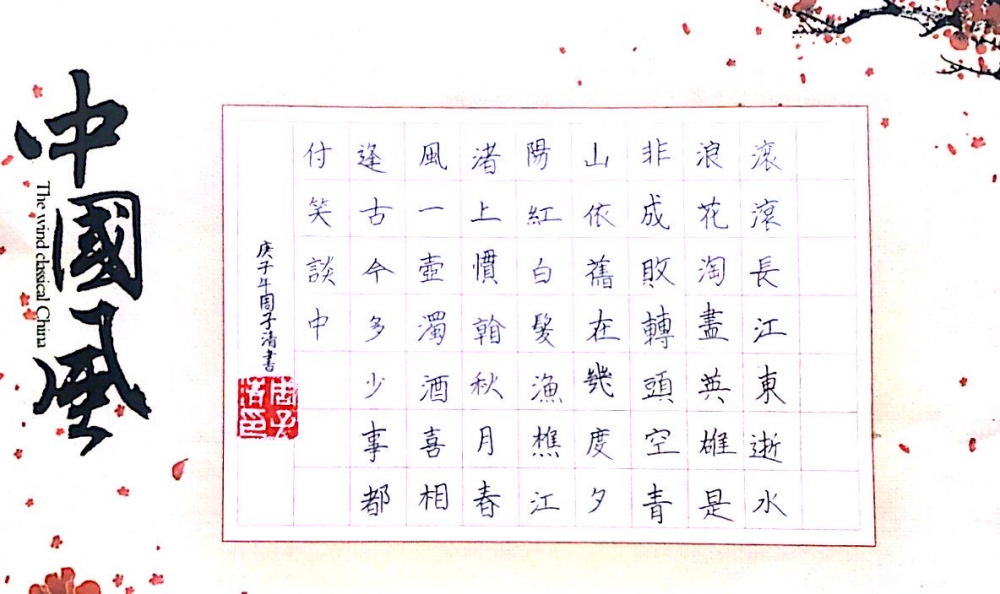 滾滾長江東逝水
浪花淘盡英雄是
非成敗轉頭空青
山依舊在幾度夕
陽紅白髮漁樵江
渚上慣翰秋月春
風一壺濁酒喜相
逢古今多少事都
付笑談中
庚子年周子清書
周子清印
中國風
The wind classical China